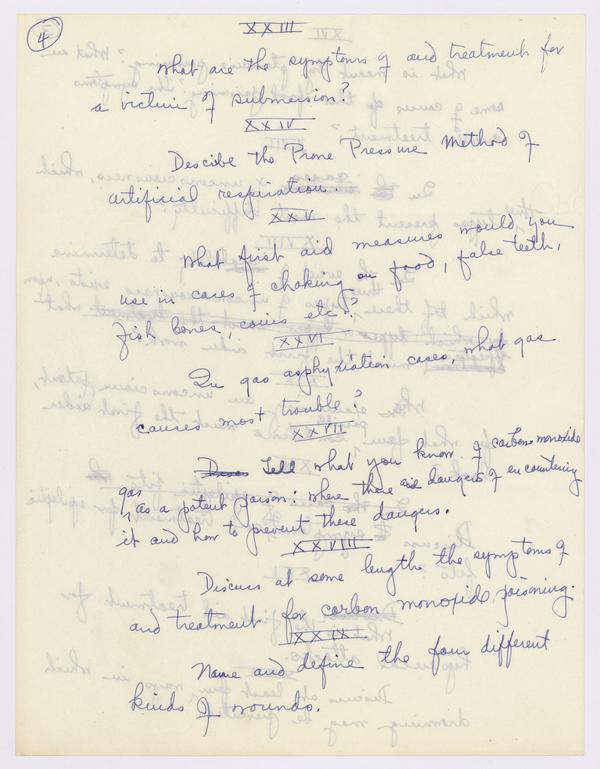 4
XXIII
What are the symptoms of and treatment for
a victim of submersion?
XXIV
Describe the Prone Pressure Method of
artificial respiration.
XXV
What first aid measures would you
use in cases of choking on food, false teeth,
fish bones, coins etc?
XXVI
In gas asphyxiation cases, what gas
causes most trouble?
XXVII
Tell what you know of carbon monoxide
gas as a potent poison: where there are dangers of encountering
it and how to prevent these dangers.
XXVIII
Discuss at some length the symptoms of
and treatment for carbon monoxide poisoning.
XXIX
Name and define the four different
kinds of wounds.